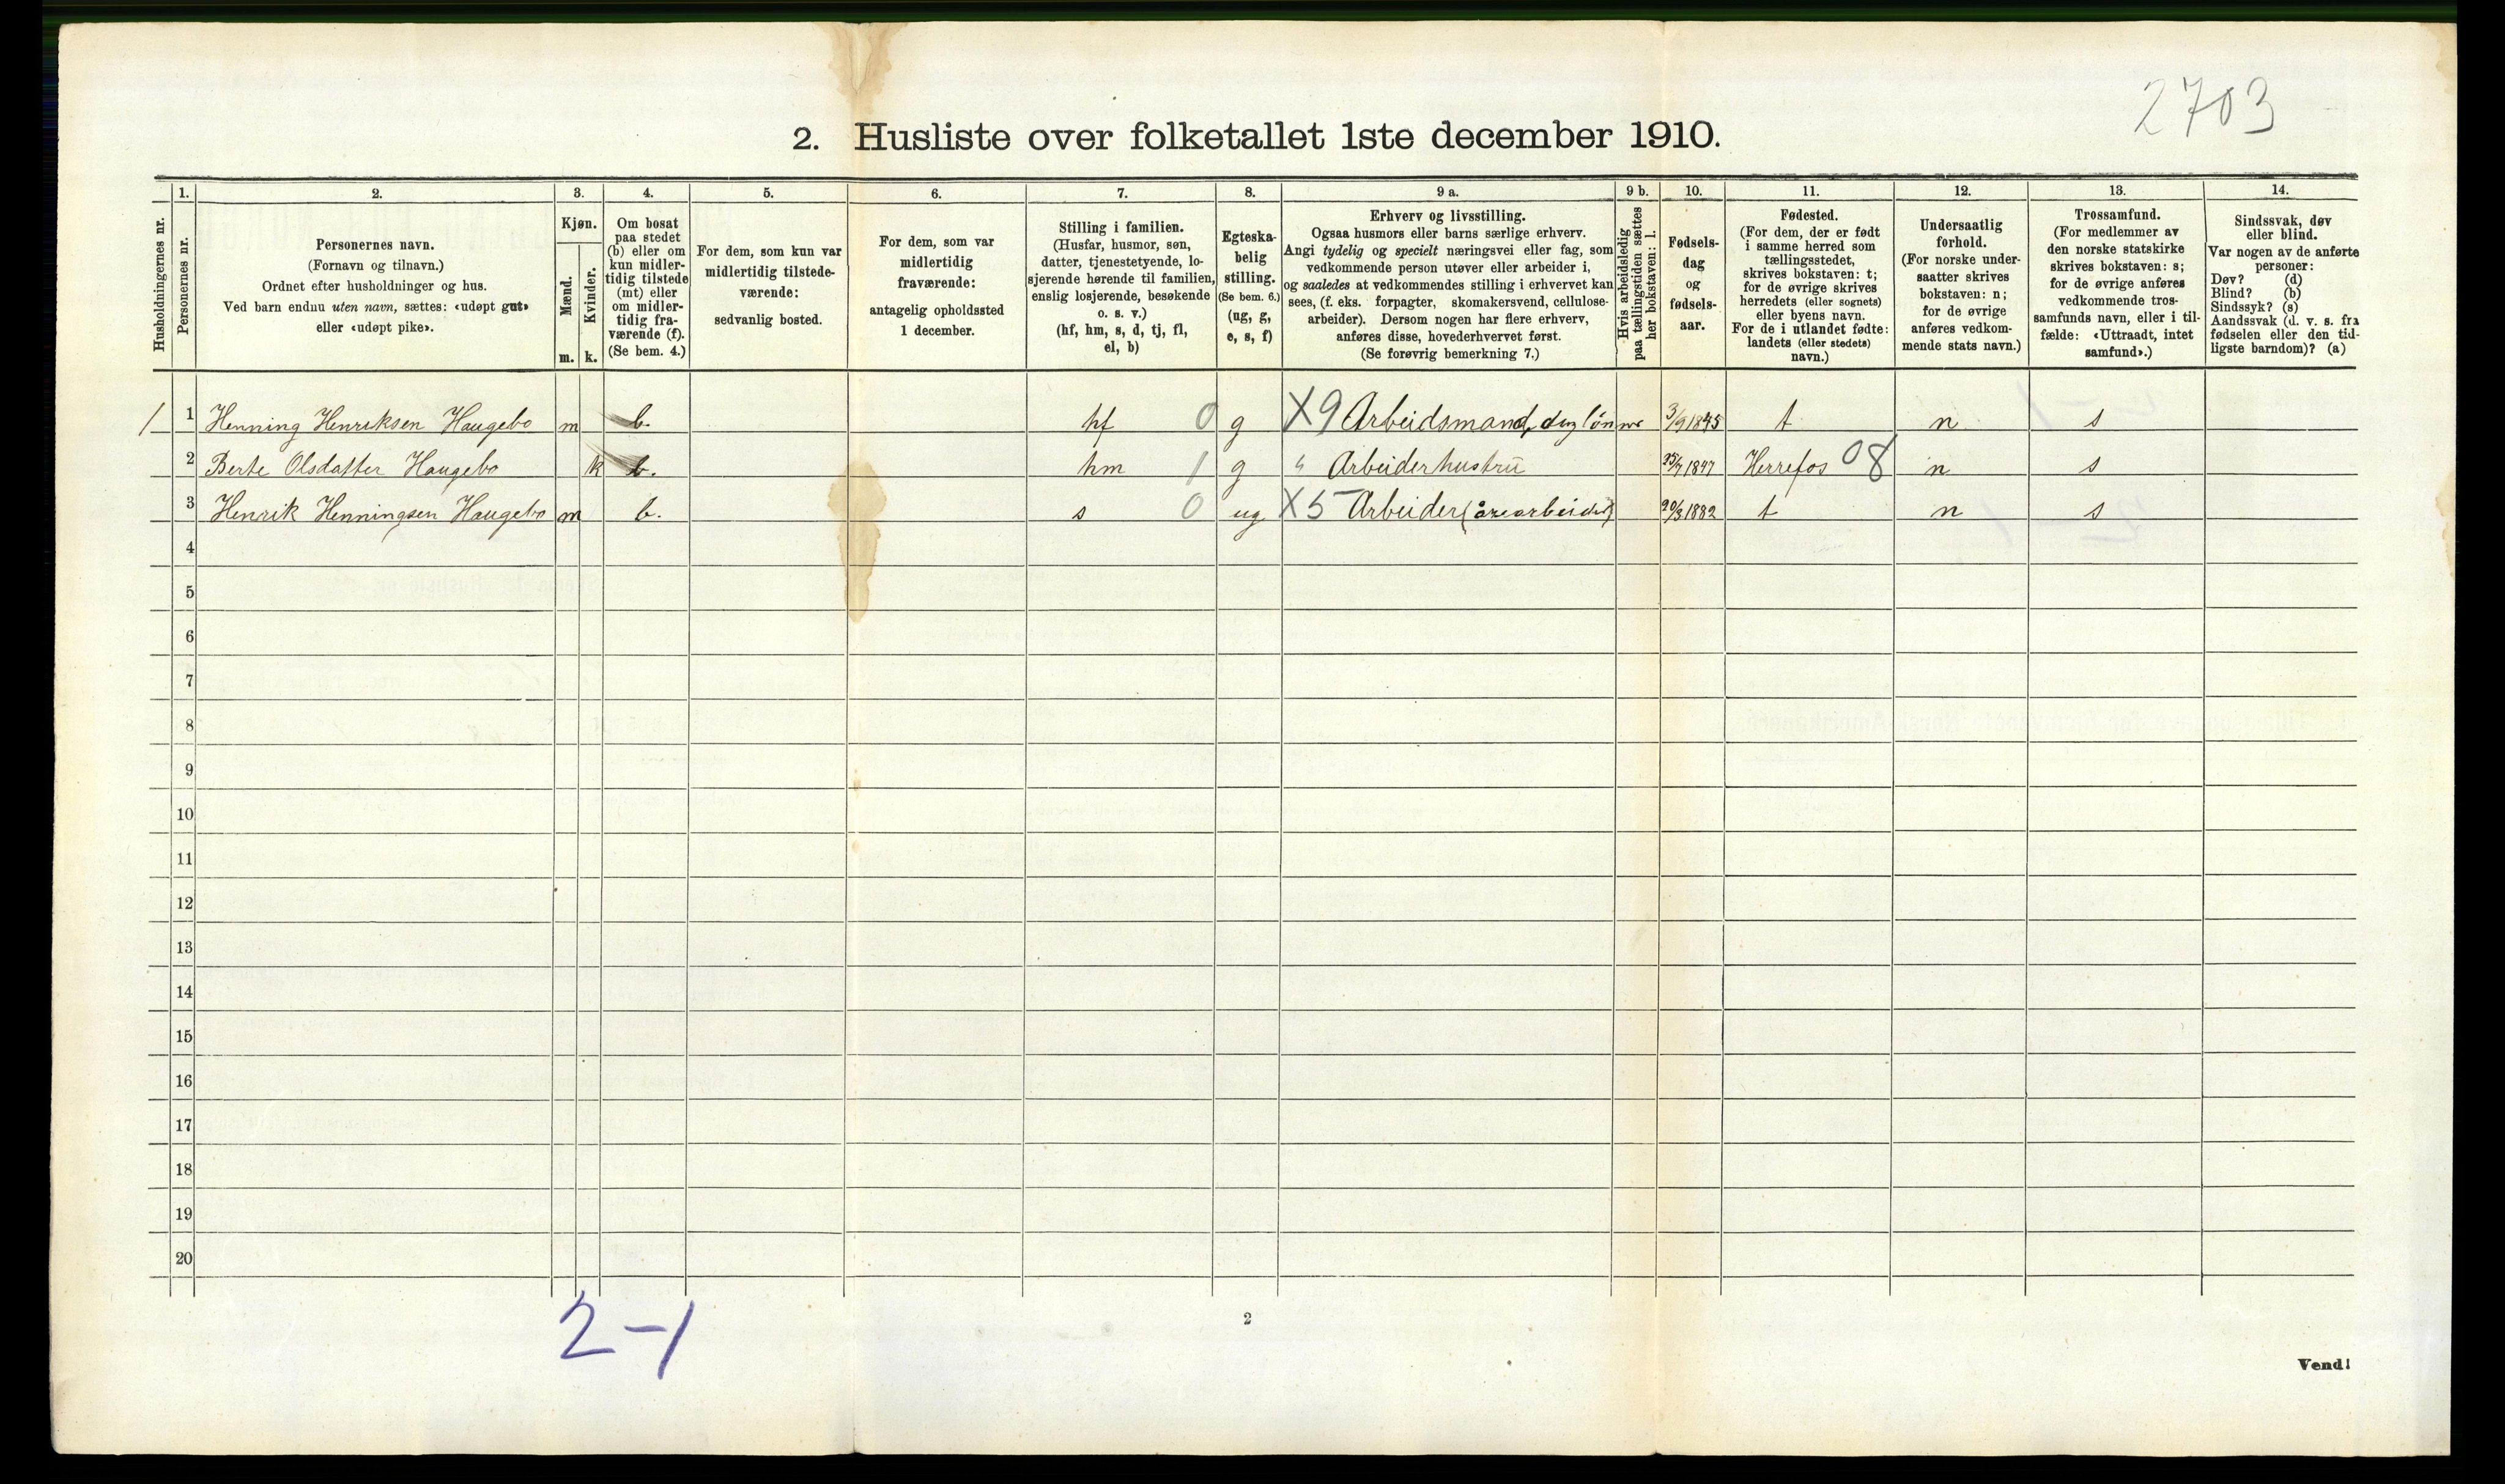 2703
2. Husliste over folketallet 1ste december 1910.
1. 2. 3. 4. 5. 6. 7. 8. 9 a. 9 b. 10. 11. 12. 13. 14.
Husholdningernes nr.
Personernes nr.
Personernes navn.
(Fornavn og tilnavn.)
Ordnet efter husholdninger og hus.
Ved barn endnu uten navn, sættes: «udøpt gut»
eller «udøpt pike».
Kjøn.
Mænd.
Kvinder.
m. k.
Om bosat
paa stedet
(b) eller om
kun midler-
tidig tilstede
(mt) eller
om midler-
tidig fra-
værende (f).
(Se bem. 4.)
For dem, som kun var
midlertidig tilstede-
værende:
sedvanlig bosted.
For dem, som var
midlertidig
fraværende:
antagelig opholdssted
1 december.
Stilling i familien.
(Husfar, husmor, søn,
datter, tjenestetyende, lo-
sjerende hørende til familien,
enslig losjerende, besøkende
o. s. v.)
(hf, hm, s, d, tj, fl,
el, b)
Egteska-
belig
stilling.
(Se bem. 6.)
(ug, g,
e, s, f)
Erhverv og livsstilling.
Ogsaa husmors eller barns særlige erhverv.
Angi tydelig og specielt næringsvei eller fag, som
vedkommende person utøver eller arbeider i,
og saaledes at vedkommendes stilling i erhvervet kan
sees, (f. eks. forpagter, skomakersvend, cellulose-
arbeider). Dersom nogen har flere erhverv,
anføres disse, hovederhvervet først.
(Se forøvrig bemerkning 7.)
Hvis arbeidsledig
paa tællingstiden sættes
her bokstaven: l.
Fødsels-
dag
og
fødsels-
aar.
Fødested.
(For dem, der er født
i samme herred som
tællingsstedet,
skrives bokstaven: t;
for de øvrige skrives
herredets (eller sognets)
eller byens navn.
For de i utlandet fødte:
landets (eller stedets)
navn.)
Undersaatlig
forhold.
(For norske under-
saatter skrives
bokstaven: n;
for de øvrige
anføres vedkom-
mende stats navn.)
Trossamfund.
(For medlemmer av
den norske statskirke
skrives bokstaven: s;
for de øvrige anføres
vedkommende tros-
samfunds navn, eller i til-
fælde: «Uttraadt, intet
samfund».)
Sindssvak, døv
eller blind.
Var nogen av de anførte
personer:
Døv? (d)
Blind? (b)
Sindssyk? (s)
Aandssvak (d. v. s. fra
fødselen eller den tid-
ligste barndom)? (a)
1 1 Henning Henriksen Haugebo m b. hf 0 g X9 Arbeidsmand, 3/9 1845 t n s
2 Berte Olsdatter Haugebo k b. hm 1 g " Arbeiderhustru 25/7 1847 Herrefos 08 n s
3 Henrik Henningsen Haugebo m b. s 0 ug X5 Arbeider 20/3 1882 t n s
4
5
6
7
8
9
10
11
12
13
14
15
16
17
18
19
20
2-1
2
Vend!